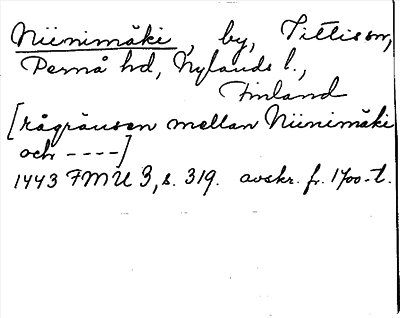 Niinimäki, by, Sittis sn,
Pernå hd, Nylands l.,
Finland
[rågränsen mellan Niinimäki
och ----]
1443 FMU 3, s. 319. avskr. fr. 1700-t.